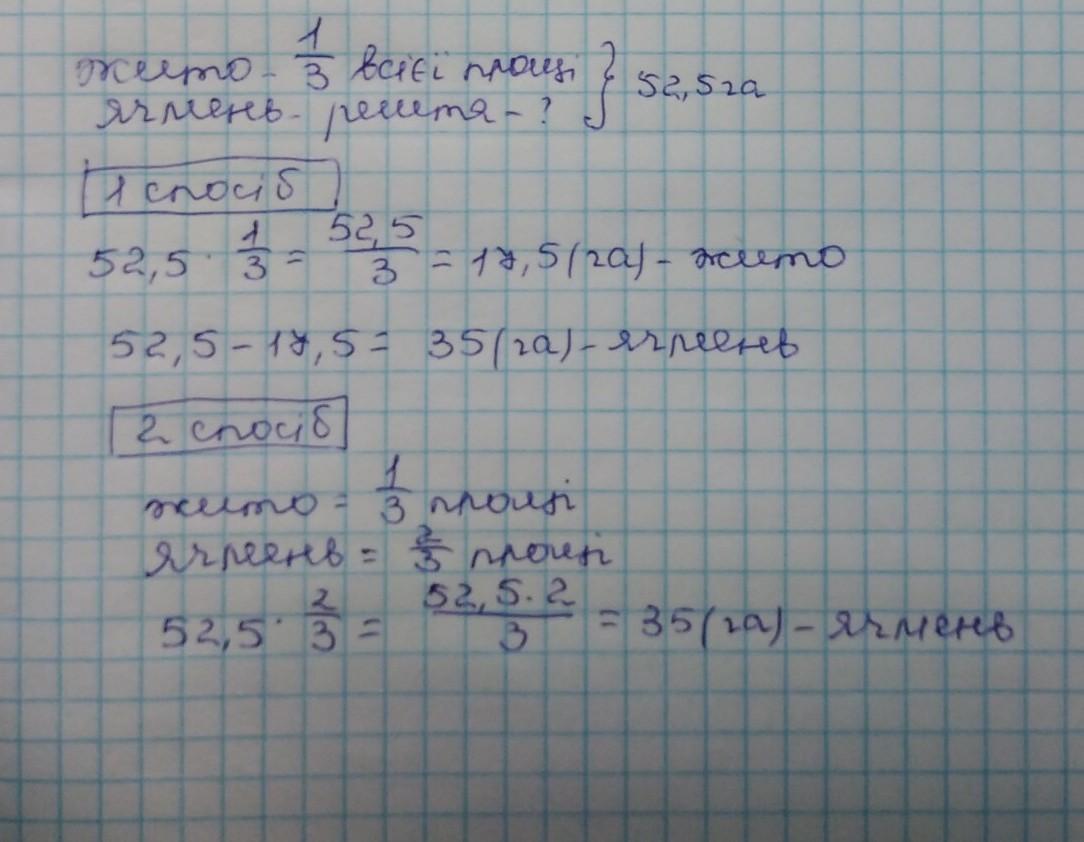 жито - 1/3 всієї площі } 52,5 га
ячмень - решта - ?
1 спосіб
52,5 · 1/3 = 52,5/3 = 17,5 (га) - жито
52,5 - 17,5 = 35 (га) - ячмень
2 спосіб
жито = 1/3 площі
ячмень = 2/3 площі
52,5 · 2/3 = 52,5 · 2/3 = 35 (га) - ячмень